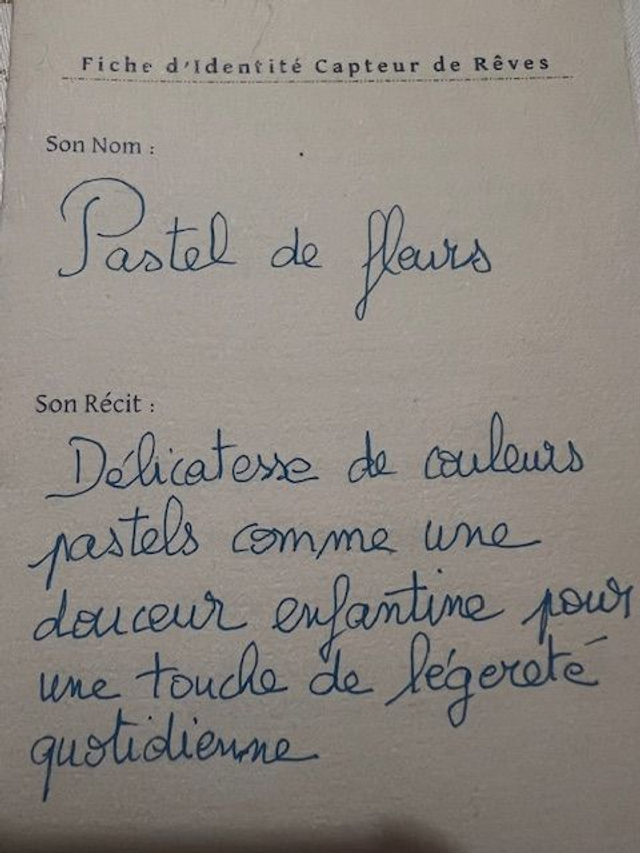 Fiche d'Identité Capteur de Rêves
Son Nom :
Pastel de fleurs
Son Récit :
Délicatesse de couleurs
pastels comme une
douceur enfantine pour
une touche de légereté
quotidienne